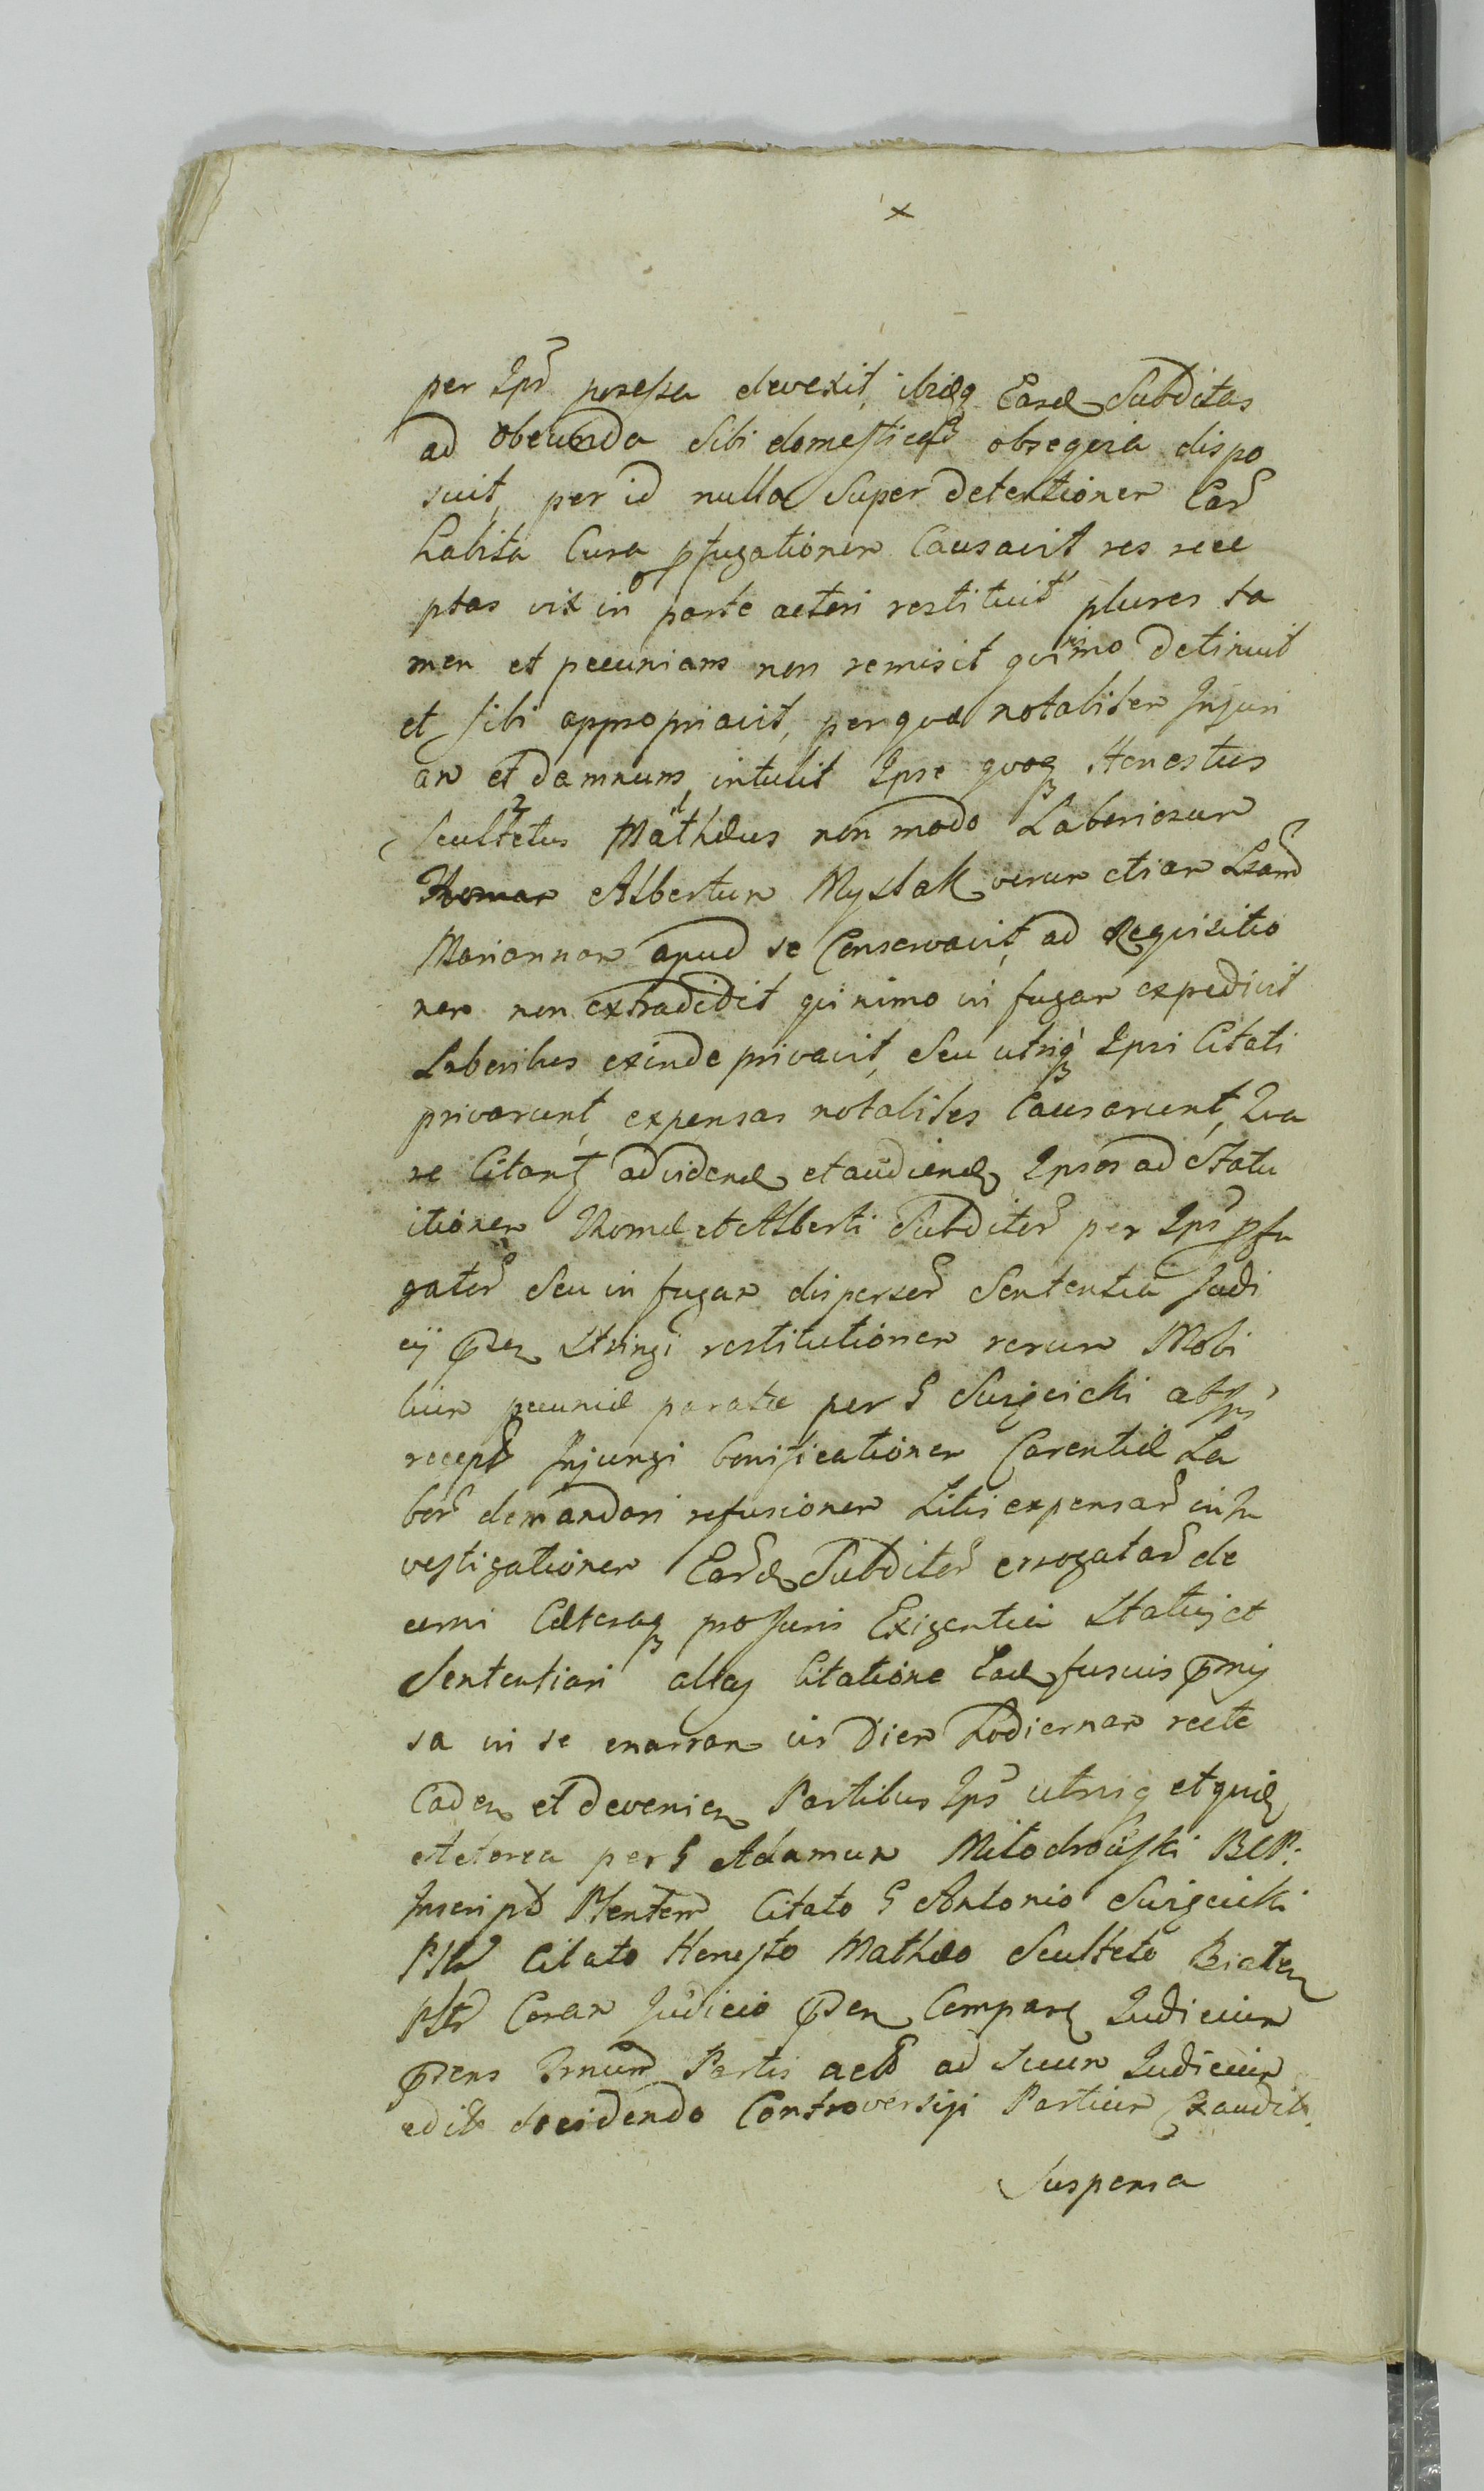 x
per Ips possessa devexit, ibidq Easd Subditas
ad obeunda Sibi domestica obsequia dispo
suit, per id nulla Super detentionem Ear
habita Cura pfugationem Causavit, res rece
ptas vix in parte actori restituit plures ta
men et pecuniam non remisit quinimo detinuit
et sibi appropriavit, per quæ notabiliter Injuri
am et damnum, intulit Ipse quoq Honestus
Scultetus Mathæus non modo Laboriosum
Thomam Albertum Myslak verum etiam
Mariannam apud se Conservavit, ad Requisitio
nem non extradidit quinimo in fugam expedivit
Laboribus exinde privavit, Seu utriq Ipsi Citati
privarunt, expensas notabiles Causarunt, Qua
re Citant ad vidend et audiend Ipsos ad Statu
itionem Thomæ et Alberti Subditor per Ips pfu
gator Seu in fugam disperser Sententia Judi
cij pñ Stringi restitutionem rerum Mobi
lium pecuniæ paratæ per G Swięcicki
recept Injungi bonificationem Carentiæ La
bor demandari refusionem Litis expensar in In
vestigationem Eard Subditor errogatar de
cerni Cæteraq pro Juris Exigentia Statuj et
Sententiari Citatione Ead fusius pmis
sa in se enarran in Diem hodiernam recte
Caden et devenien Partibus Ips utrisq et quid
Actorea per G Adamum Milodrowski
Inscript Plentem Citato G Antonio Swięcicki
Citato Honesto Mathæo Sculteto
Coram Judicio pñ Compar Judicium
pñs Partis act ad Suum Judicium
edit decidendo Controversiji Partium Exaudit
Suspensa